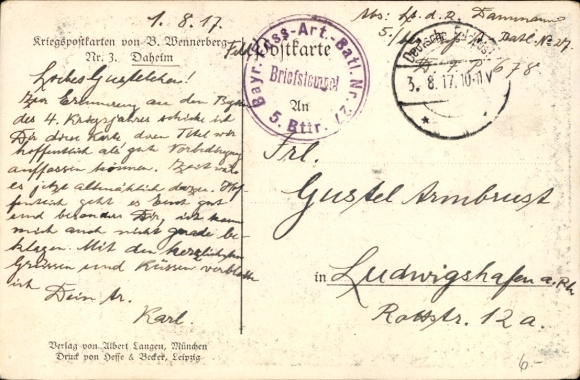 1.8.17.
Kriegspostkarten von B. Wennerberg
Nr. 3. Daheim
Liebes Gustelchen!
Zur Erinnerung an den Beginn
des 4. Kriegsjahres schicke ich
Dir diese Karte deren Titel wir
hoffentlich als gute Vorbedeutung
auffassen können. Zeit wäre
es jetzt allmählich dazu. Hof-
fentlich geht es Euch gut
und besonders Dir, ich kann
mich auch nicht gerade be-
klagen. Mit den herzlichsten
Grüssen und Küssen verbleibe
ich Dein tr.
Karl
Verlag von Albert Langen, München
Druck von Hesse & Becker, Leipzig
Feldpostkarte
Bayr. Fuss-Art.-Batl. Nr. 27
Briefstempel
5. Battr.
An
Abs: Lt. d. R. Dammann
5./ Batl. No 27.
678
3. 8. 17. 10-11 V
Frl.
Gustel Armbrust
in Ludwigshafen a. Rh.
Rottstr. 12a.
6.-